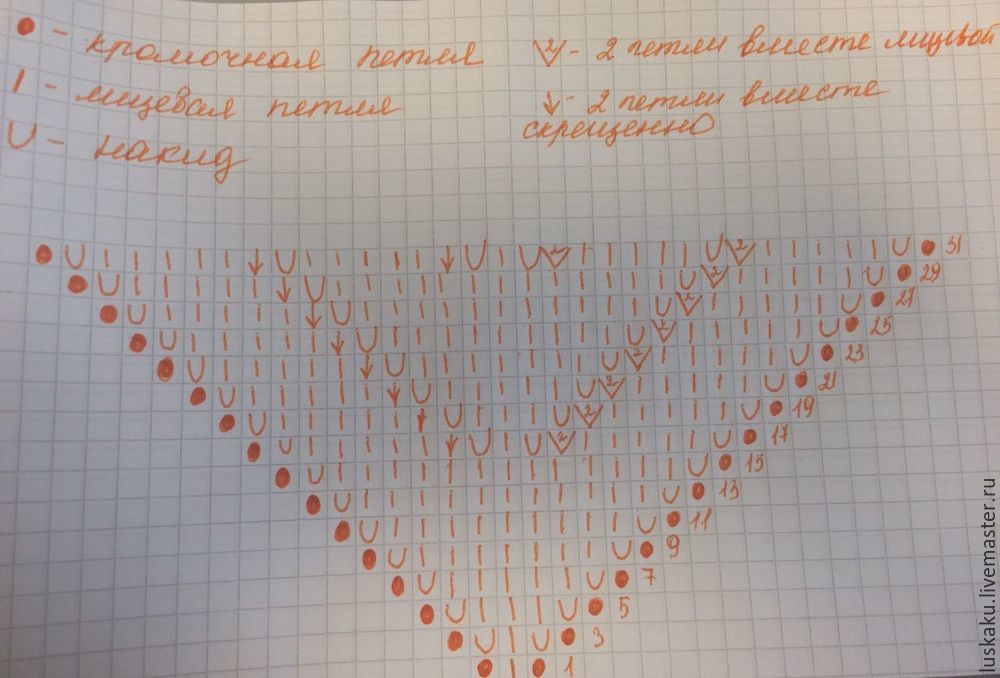 ● - кромочная петля
2 - 2 петли вместе лицевой
| - лицевая петля
↓ - 2 петли вместе
скрещенно
U - накид
● U | | | | | ↓ U | | | | | ↓ U | U 2 | | | | | U 2 | | | | | U ● 31
29
27
25
23
21
19
17
15
13
11
9
7
5
● U | U ● 3
● | ● 1
luskaku.livemaster.ru